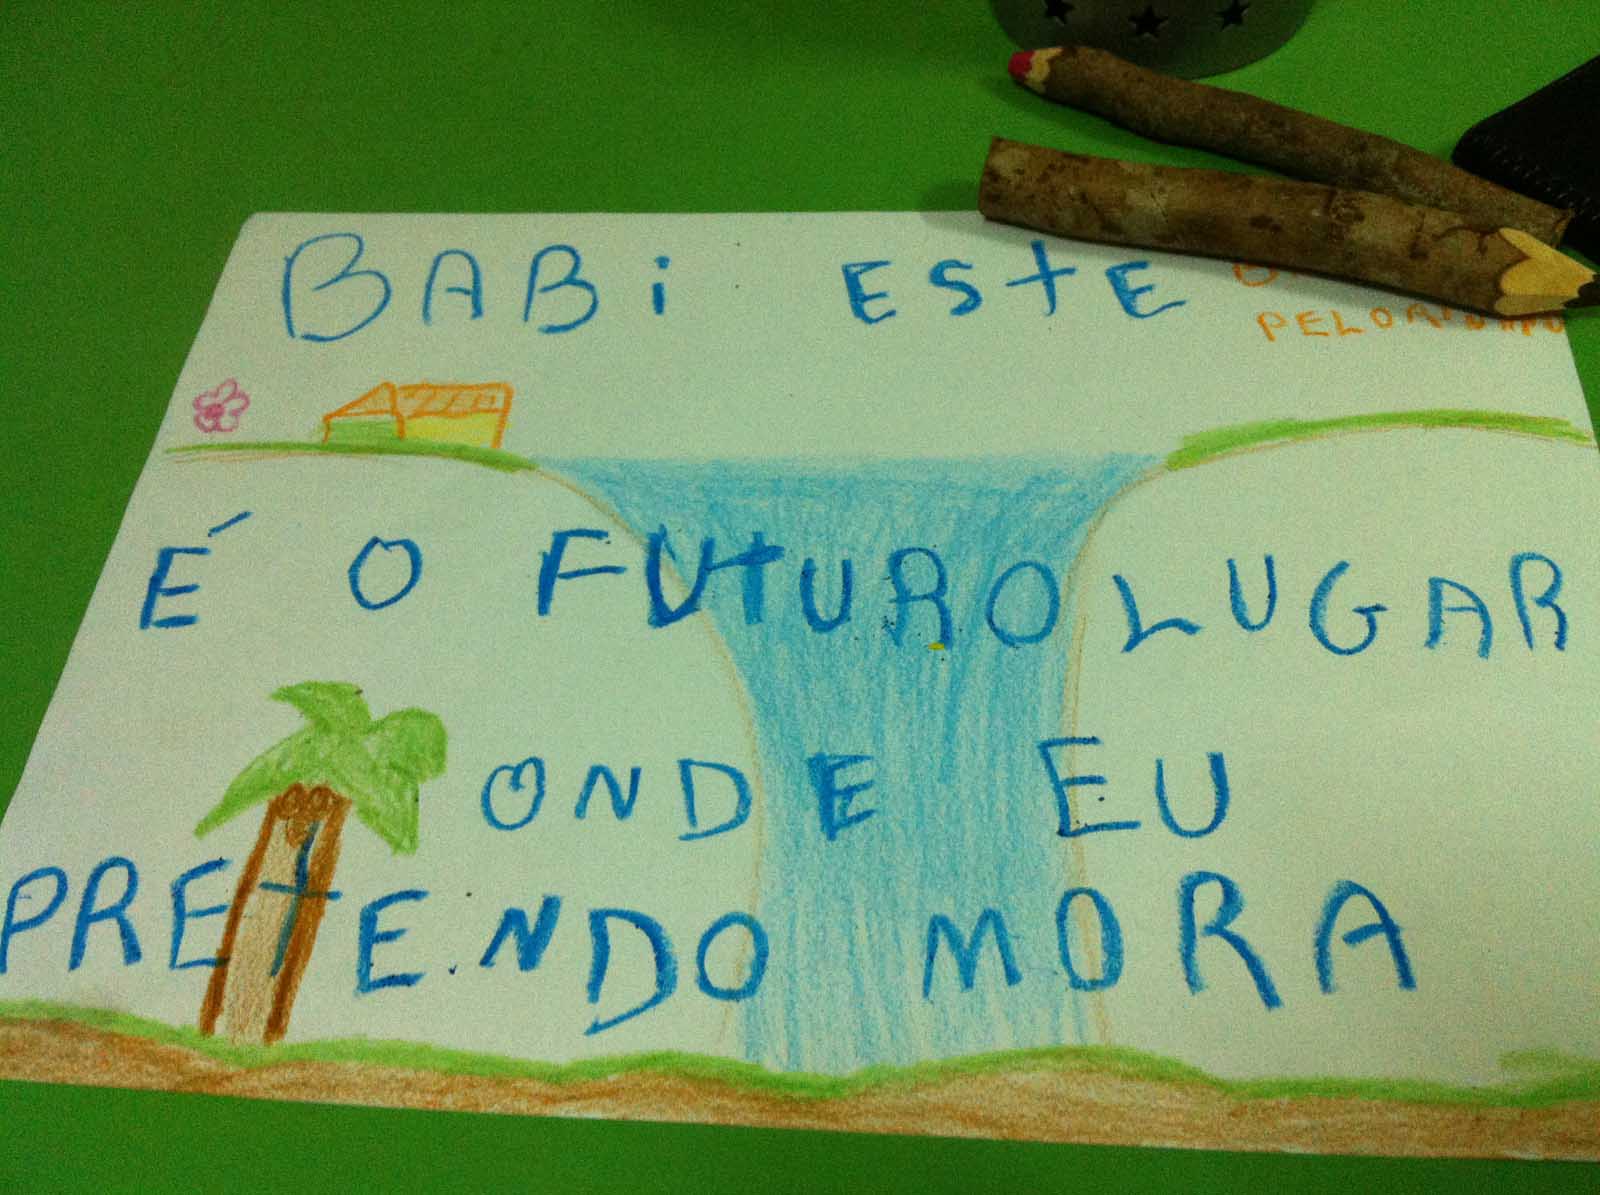 BABi ESTE
É O FUTURO LUGAR
ONDE EU
PRETENDO MORA